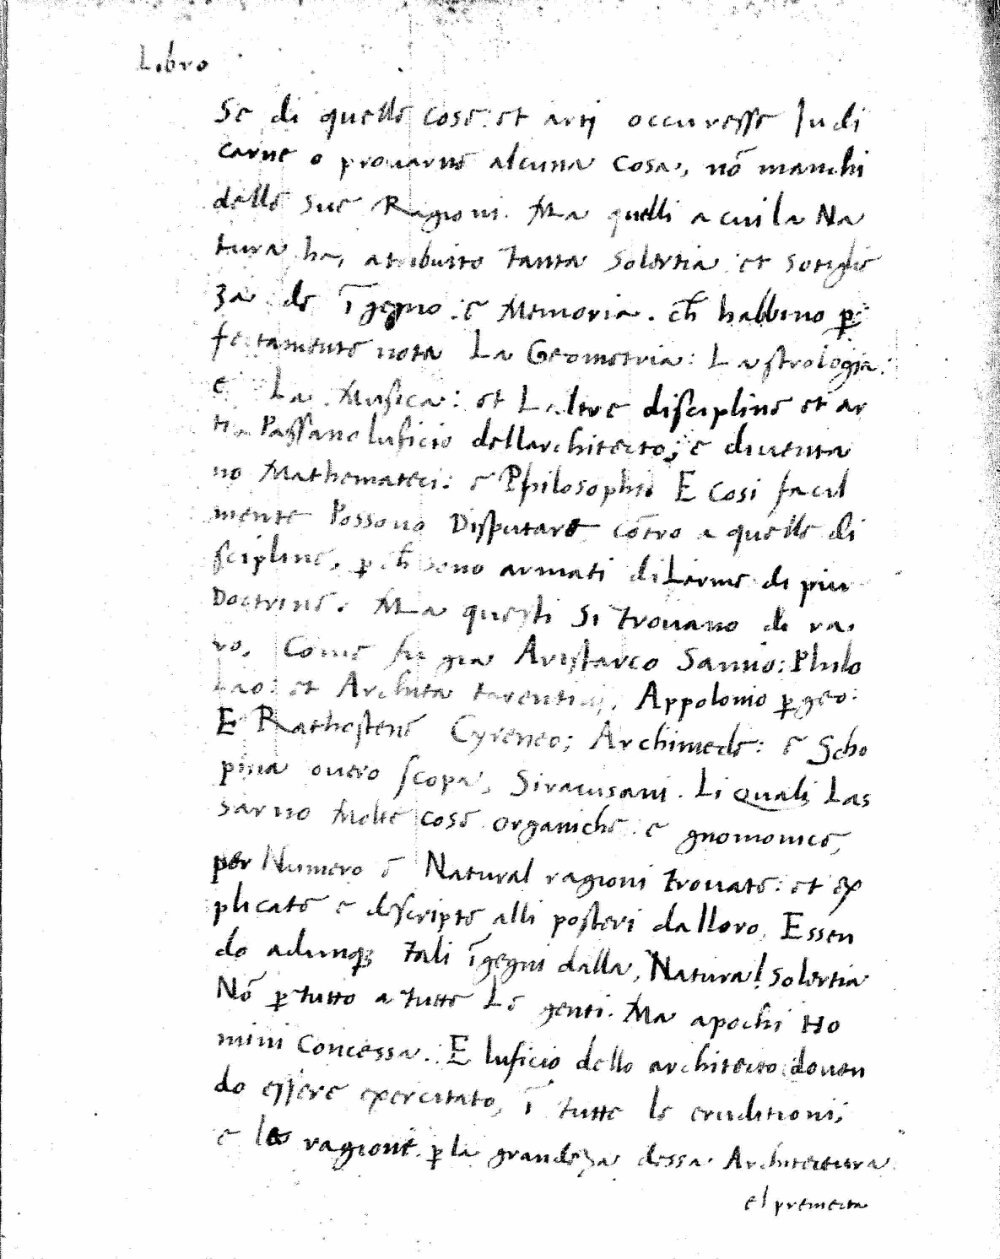 Libro
Se di quelle cose. et arti occuresse Judi
carne o provarne alcuna cosa, nõ manchi
delle sue Ragioni. Ma quelli a cui la Na
tura ha, atribuito tanta solertia et sotiglie
za de ĩgegno. e Memoria. ch̃ habbino ꝑ
fectamente nota La Geometria: Lastrologia:
e La Musica: et Laltre discipline et ar
ti. Passano luficio dellarchitecto; e diventa
no Mathematici: e Philosophi E cosi facil
mente Possono Disputare cõtro a quelle di
scipline, ꝑ ch̃ sono armati di Larme di piu
Doctrine. Ma questi si trovano di ra.
ro, Come fu gia Aristarco Samio: Philo
Lao: et Archita tarentini, Appolonio ꝑgeo:
E Rathestene Cyreneo; Archimede: e Scho
pina overo scopa, Siracusani. Li quali Las
sarno Molte cose organiche e gnomonice,
per Numero e Natural ragioni trovate: et ex
plicate e descripte alli posteri dalloro. Essen
do adunqꝫ tali ĩgegni dalla, Natural solertia
Nõ ꝑ tutto a tutte Le genti. Ma apochi Ho
mini Concessa. E luficio dello architecto doven
do essere exercitato, ĩ tutte le eruditioni;
e le ragione ꝑ la grandeza dessa Architectura
el premecta